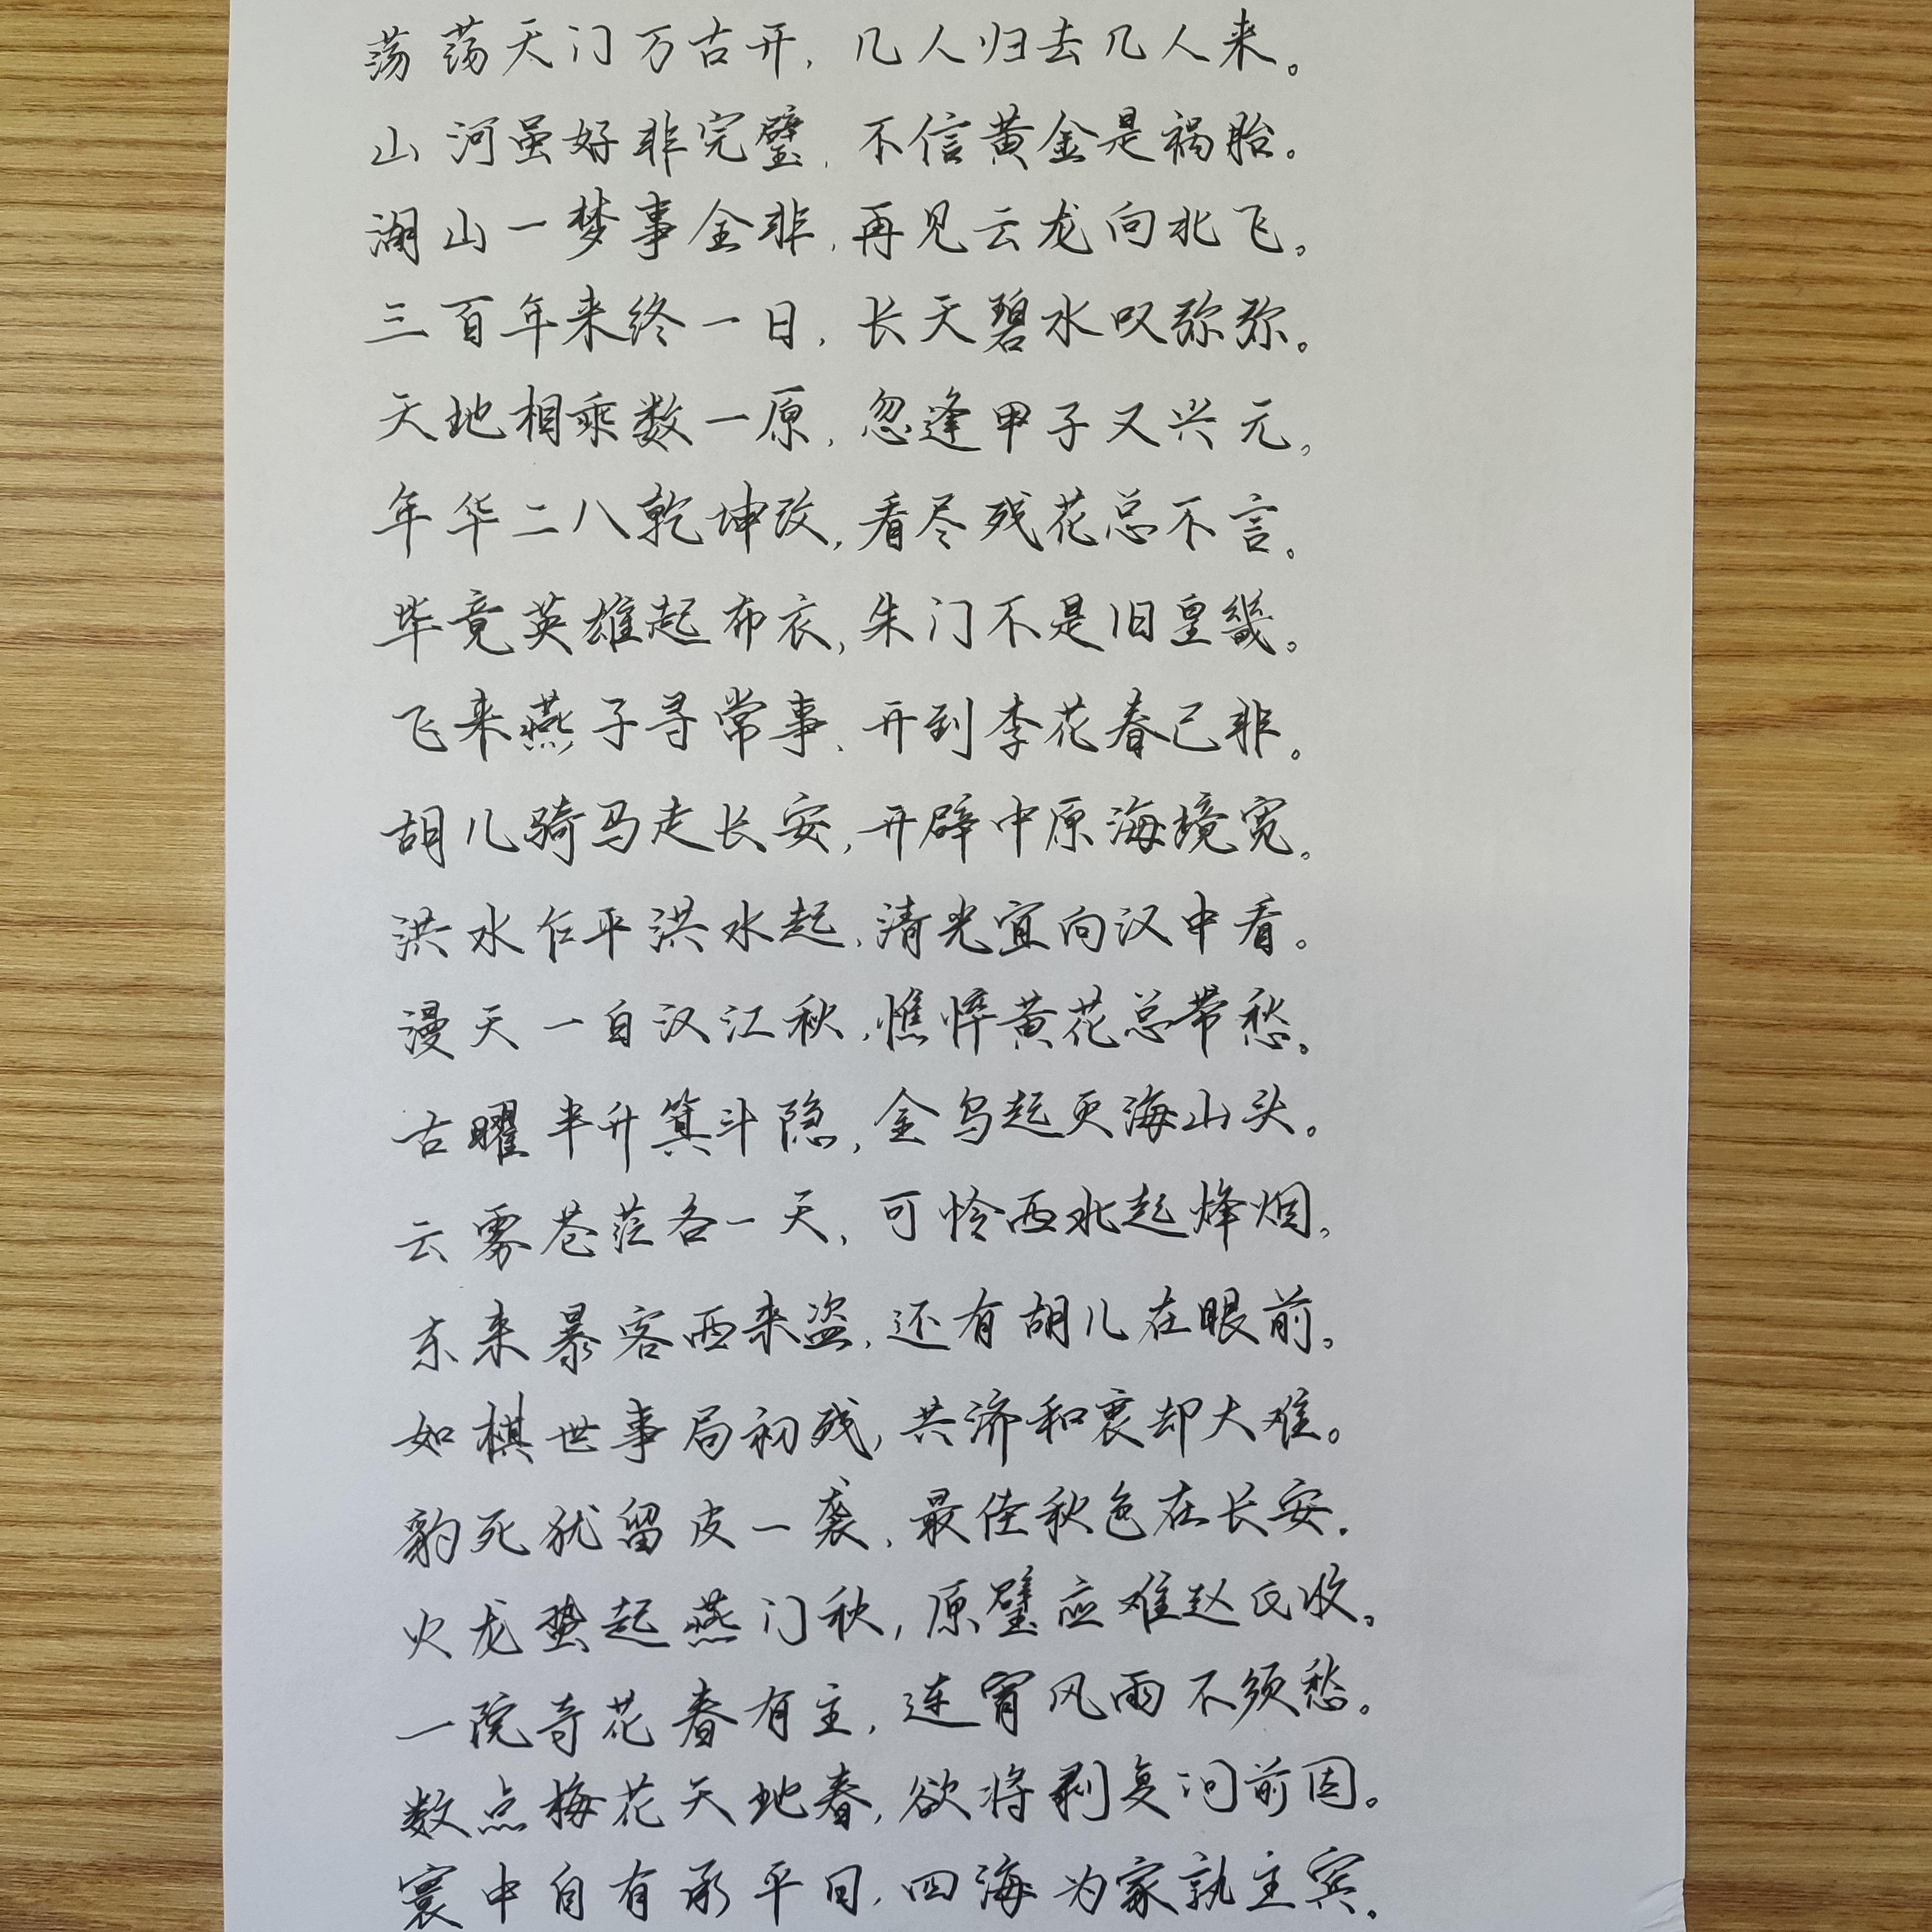 荡荡天门万古开，几人归去几人来。
山河虽好非完璧，不信黄金是祸胎。
湖山一梦事全非，再见云龙向北飞。
三百年来终一日，长天碧水叹弥弥。
天地相乘数一原，忽逢甲子又兴元。
年华二八乾坤改，看尽残花总不言。
毕竟英雄起布衣，朱门不是旧皇畿。
飞来燕子寻常事，开到李花春已非。
胡儿骑马走长安，开辟中原海境宽。
洪水乍平洪水起，清光宜向汉中看。
漫天一白汉江秋，憔悴黄花总带愁。
古曜半升箕斗隐，金乌起灭海山头。
云雾苍茫各一天，可怜西北起烽烟。
东来暴客西来盗，还有胡儿在眼前。
如棋世事局初残，共济和衷却大难。
豹死犹留皮一袭，最佳秋色在长安。
火龙蛰起燕门秋，原璧应难赵氏收。
一院奇花春有主，连宵风雨不须愁。
数点梅花天地春，欲将剥复问前因。
寰中自有承平日，四海为家孰主宾。